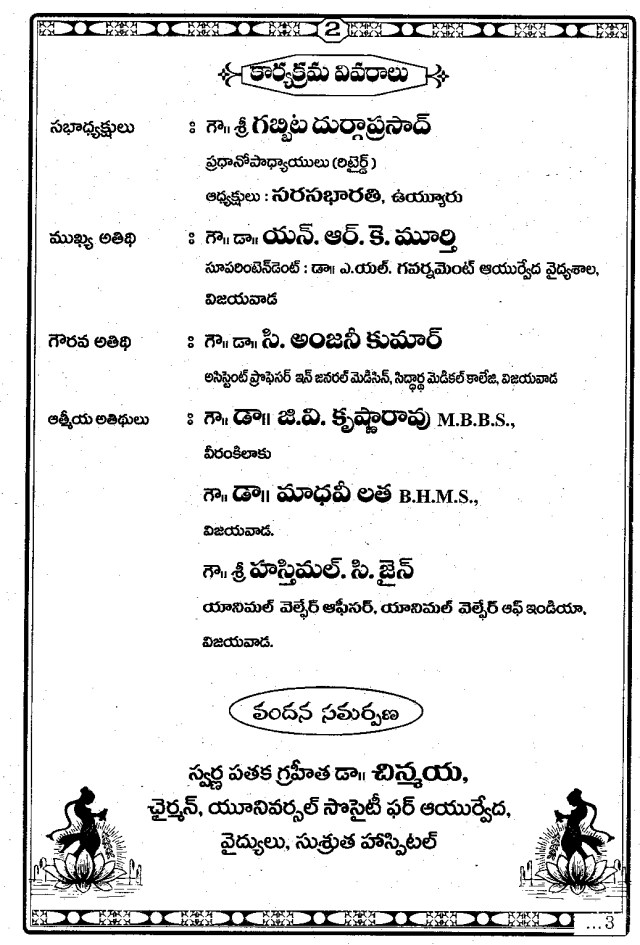 2
కార్యక్రమ వివరాలు
సభాధ్యక్షులు : గౌ॥ శ్రీ గబ్బిట దుర్గాప్రసాద్
ప్రధానోపాధ్యాయులు (రిటైర్డ్)
ఆధ్యక్షులు : సరసభారతి, ఉయ్యూరు
ముఖ్య అతిథి : గౌ॥ డా॥ యన్. ఆర్. కె. మూర్తి
సూపరింటెన్‌డెంట్ : డా॥ ఎ.యల్. గవర్నమెంట్ ఆయుర్వేద వైద్యశాల,
విజయవాడ
గౌరవ అతిథి : గౌ॥ డా॥ సి. అంజనీ కుమార్
అసిస్టెంట్ ప్రొఫెసర్ ఇన్ జనరల్ మెడిసిన్, సిద్ధార్థ మెడికల్ కాలేజి, విజయవాడ
ఆత్మీయ అతిథులు : గౌ॥ డా॥ జి.వి. కృష్ణారావు M.B.B.S.,
వీరంకిలాకు
గౌ॥ డా॥ మాధవీ లత B.H.M.S.,
విజయవాడ.
గౌ॥ శ్రీ హస్తిమల్. సి. జైన్
యానిమల్ వెల్ఫేర్ ఆఫీసర్, యానిమల్ వెల్ఫేర్ ఆఫ్ ఇండియా,
విజయవాడ.
వందన సమర్పణ
స్వర్ణ పతక గ్రహీత డా॥ చిన్మయ,
ఛైర్మన్, యూనివర్సల్ సొసైటీ ఫర్ ఆయుర్వేద,
వైద్యులు, సుశ్రుత హాస్పిటల్
...3